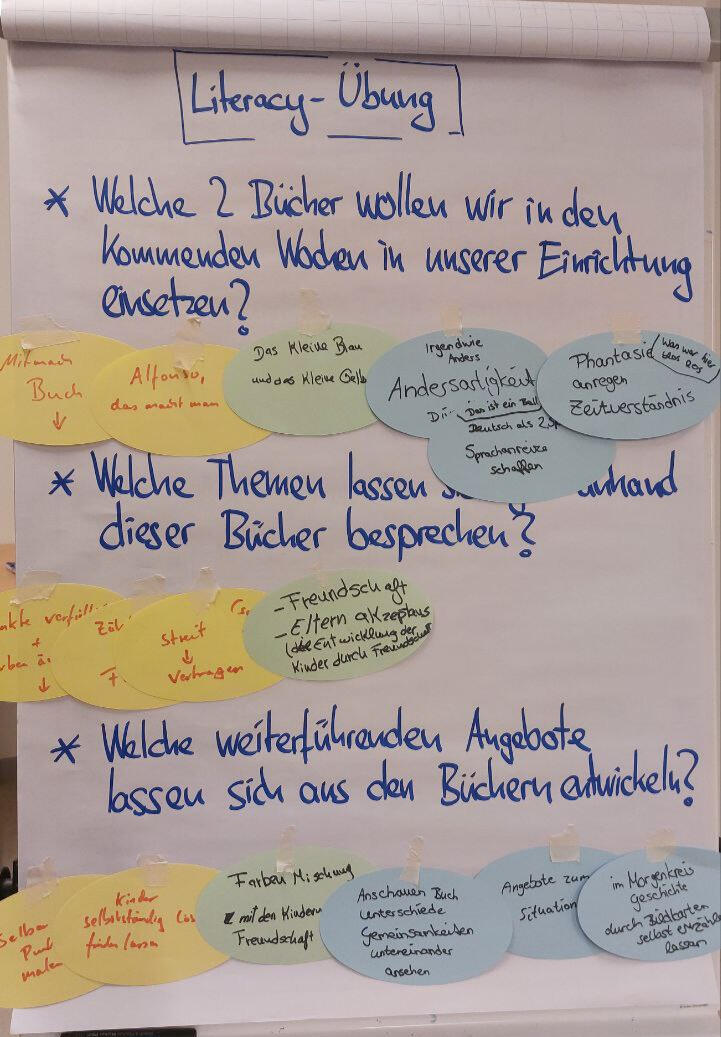 Literacy-Übung
* Welche 2 Bücher wollen wir in den
kommenden Wochen in unserer Einrichtung
einsetzen?
Mitmach
Buch
↓
Alfonso,
das macht man
Das kleine Blau
und das kleine Gelb
Irgendwie
Anders
Andersartigkeit
Das ist ein Ball
Deutsch als
Sprachanreize
schaffen
Phantasie
anregen
Zeitverständnis
Was war hier
bloß los?
* Welche Themen lassen anhand
dieser Bücher besprechen?
+
↓
Streit
↓
vertragen
- Freundschaft
- Eltern akzeptanz
(die Entwicklung der
Kinder durch Freundschaft
* Welche weiterführenden Angebote
lassen sich aus den Büchern entwickeln?
Selber
Punkt
malen
Kinder
selbstständig
finden lassen
Farben Mischung
mit den Kindern
Freundschaft
Anschauen Buch
Unterschiede
Gemeinsamkeiten
untereinander
ansehen
Angebote zum
Situation
im Morgenkreis
Geschichte
durch Bildkarten
selbst erzählen
lassen